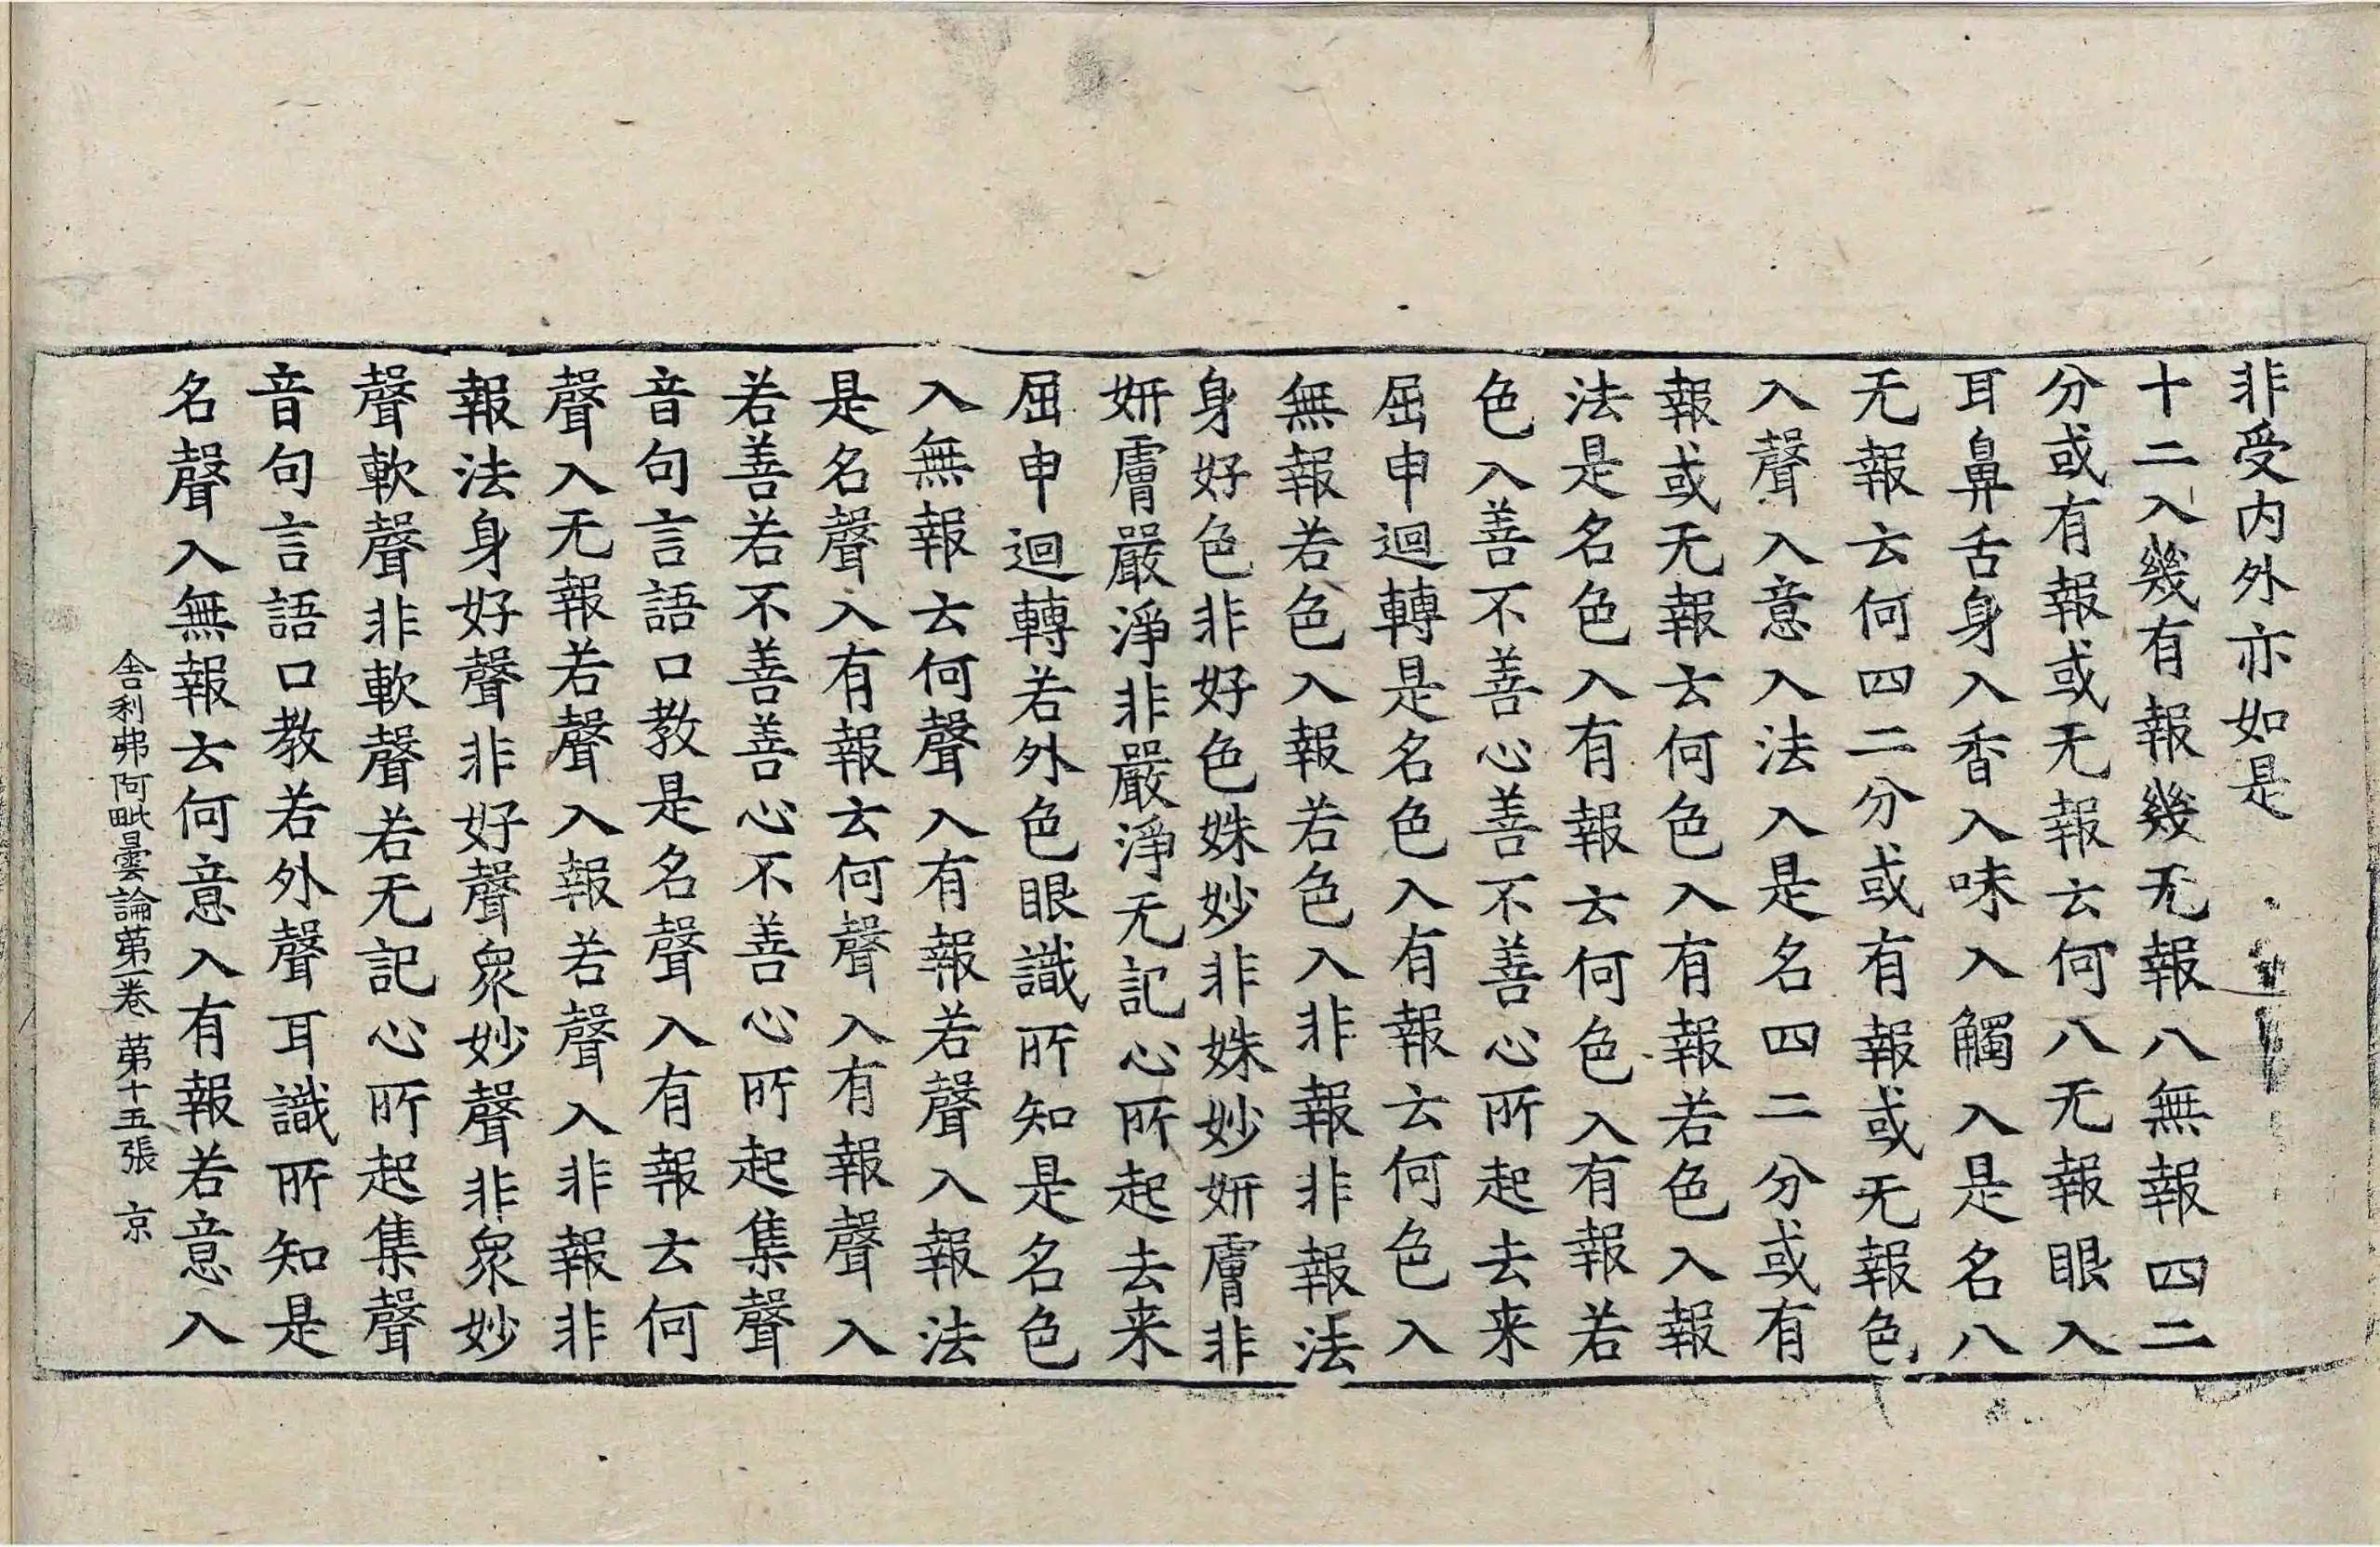 非受内外亦如是
十二入幾有報幾无報八無報四二
分或有報或无報云何八无報眼入
耳鼻舌身入香入味入觸入是名八
无報云何四二分或有報或无報色
入聲入意入法入是名四二分或有
報或无報云何色入有報若色入報
法是名色入有報云何色入有報若
色入善不善心善不善心所起去来
屈申迴轉是名色入有報云何色入
無報若色入報若色入非報非報法
身好色非好色姝妙非姝妙妍膚非
妍膚嚴淨非嚴淨无記心所起去来
屈申迴轉若外色眼識所知是名色
入無報云何聲入有報若聲入報法
是名聲入有報云何聲入有報聲入
若善若不善善心不善心所起集聲
音句言語口教是名聲入有報云何
聲入无報若聲入報若聲入非報非
報法身好聲非好聲衆妙聲非衆妙
聲軟聲非軟聲若无記心所起集聲
音句言語口教若外聲耳識所知是
名聲入無報云何意入有報若意入
舍利弗阿毗曇論第一卷 第十五張 京